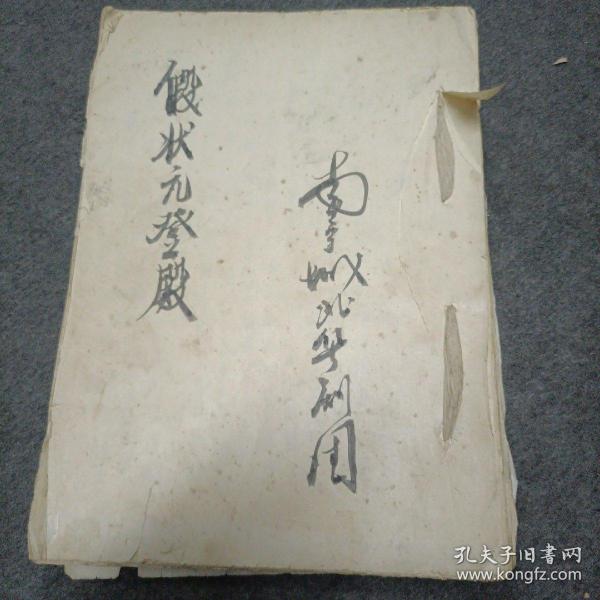 南宁城北粤剧团
假状元登殿
孔夫子旧書网
www.kongfz.com